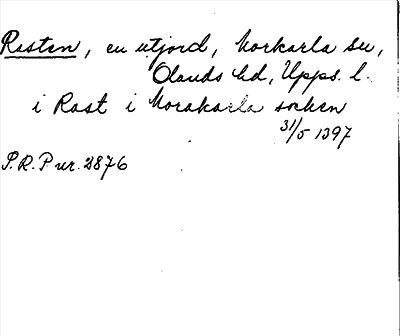 Rasten, en utjord, Morkarla sn,
Olands hd, Upps. l.
i Rast i Morakarla soken
31/5 1397
S.R.P nr. 2876